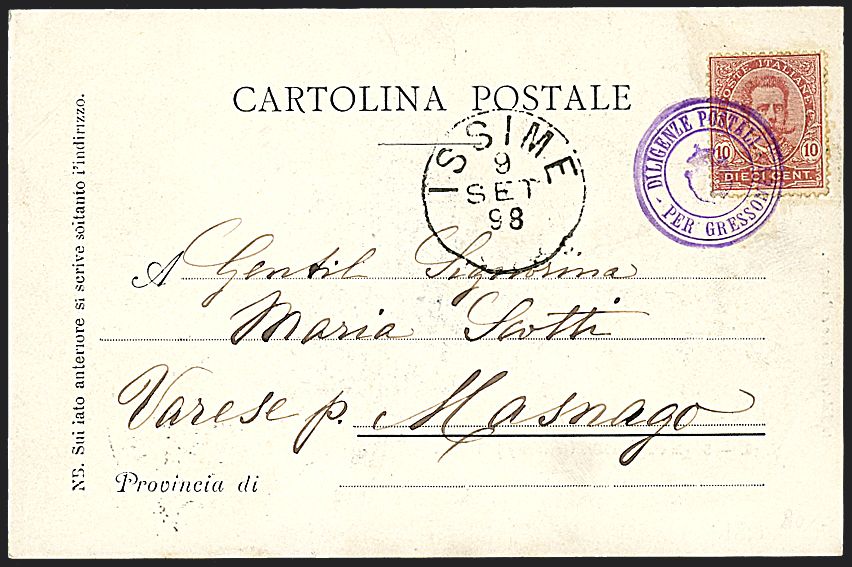 CARTOLINA POSTALE
POSTE ITALIANE
10 10
DIECI CENT.
DILIGENZE POSTALI
- PER GRESSON
ISSIME
9
SET
98
A Gentil Signorina
Maria Scotti
Varese p. Masnago
Provincia di
NB. Sul lato anteriore si scrive soltanto l'indirizzo.